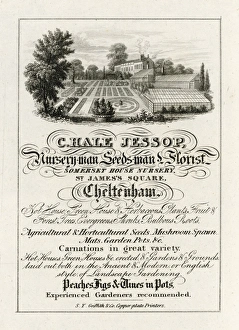 C. HALE JESSOP,
Nursery-man Seeds-man & Florist.
SOMERSET HOUSE NURSERY,
ST JAMES'S SQUARE,
Cheltenham.
Hot House, Green House & Herbaceous Plants, Fruit &
Forest Trees, Evergreens, Shrubs, Bulbous Roots,
Agricultural & Horticultural Seeds, Mushroom Spawn,
Mats, Garden Pots, &c.
Carnations in great variety.
Hot Houses, Green Houses &c erected & Gardens & Grounds
laid out both in the Ancient & Modern or English
style of Landscape Gardening.
Peaches, Figs & Vines in Pots.
Experienced Gardeners recommended.
S. Y. Griffith & Co. Copper-plate Printers.